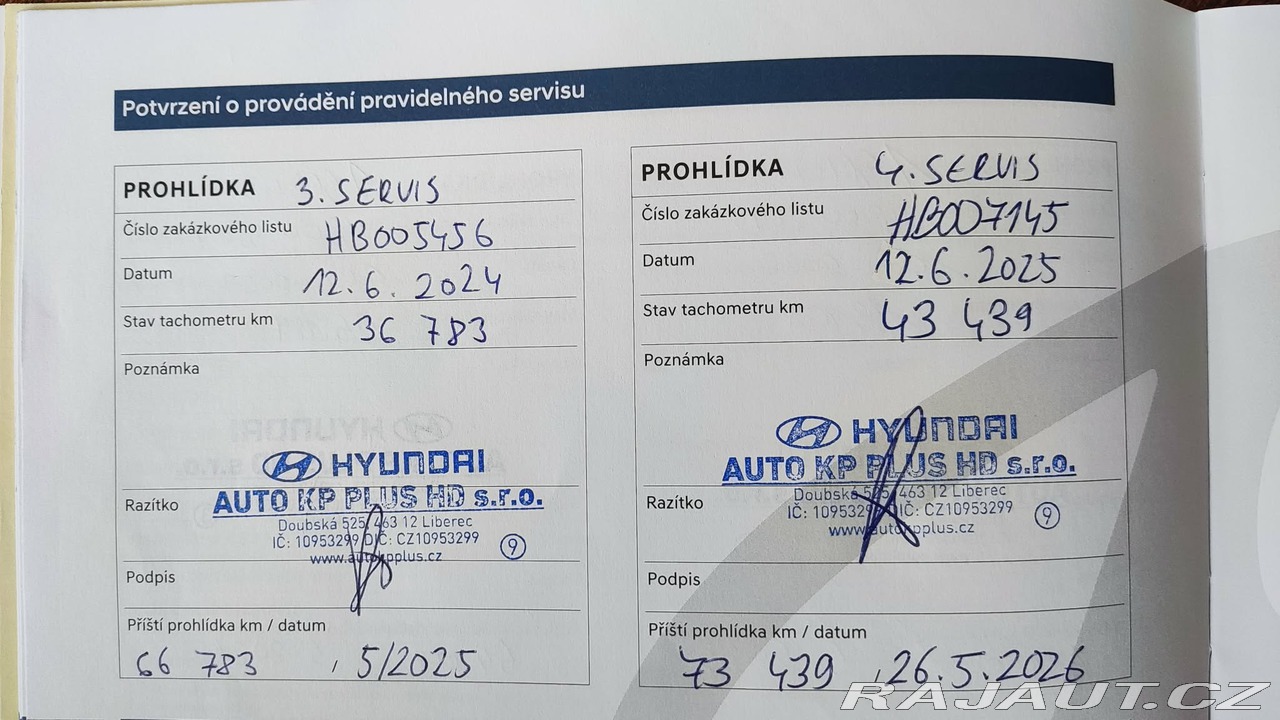 Potvrzení o provádění pravidelného servisu
PROHLÍDKA 3. SERVIS
Číslo zakázkového listu HB005456
Datum 12.6.2024
Stav tachometru km 36 783
Poznámka
HYUNDAI
AUTO KP PLUS HD s.r.o.
Razítko
Doubská 525, 463 12 Liberec
IČ: 10953299 DIČ: CZ10953299
9
www.autokpplus.cz
Podpis
Příští prohlídka km / datum
66 783 , 5/2025
PROHLÍDKA 4. SERVIS
Číslo zakázkového listu HB007145
Datum 12.6.2025
Stav tachometru km 43 439
Poznámka
HYUNDAI
AUTO KP PLUS HD s.r.o.
Razítko
Doubská 525, 463 12 Liberec
IČ: 10953299 DIČ: CZ10953299
9
www.autokpplus.cz
Podpis
Příští prohlídka km / datum
73 439 , 26.5.2026
RAJAUT.CZ